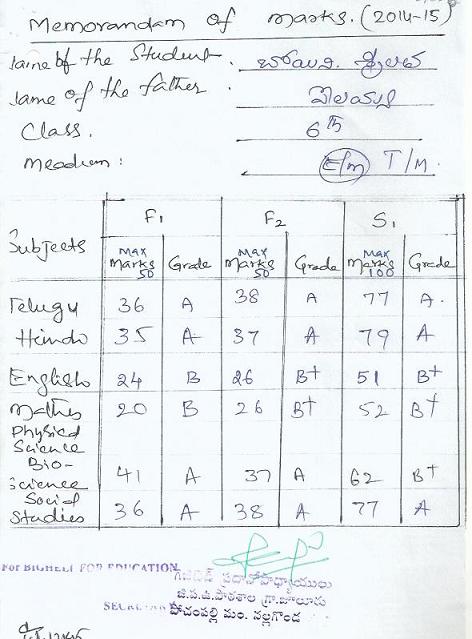 Memorandam of marks. (2014-15)
Name of the Student.
Name of the father.
Class. 6th
Meadium: E/m T/M.
F1 F2 S1
Subjects Max Marks 50 Grade Max Marks 50 Grade Max Marks 100 Grade
Telugu 36 A 38 A 77 A.
Hindo 35 A 37 A 79 A
English 24 B 26 B+ 51 B+
Maths 20 B 26 B+ 52 B+
Physical
Science
Bio-
Science 41 A 37 A 62 B+
Social
Studies 36 A 38 A 77 A
For BIGHELP FOR EDUCATION
గెజిటెడ్ ప్రధానోపాధ్యాయులు
జి.ప.ఉ.పాఠశాల గ్రా.జూలూరు
పోచంపల్లి మం. నల్లగొండ